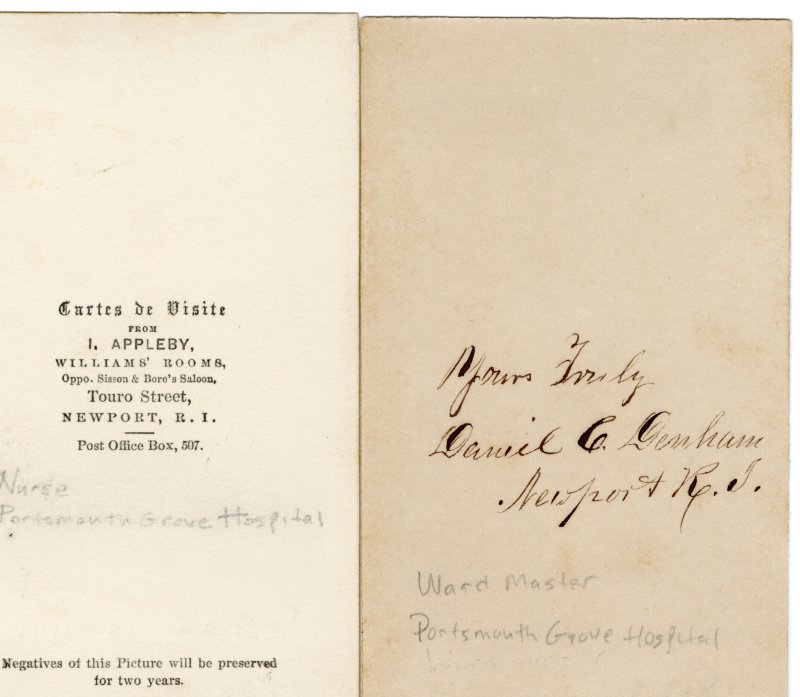 Cartes de Visite
FROM
I. APPLEBY,
WILLIAMS' ROOMS,
Oppo. Sisson & Bore's Saloon,
Touro Street,
NEWPORT, R. I.
Post Office Box, 507.
Nurse
Portsmouth Grove Hospital
Negatives of this Picture will be preserved
for two years.
Yours Truly
Daniel C. Denham
Newport R. I.
Ward Master
Portsmouth Grove Hospital